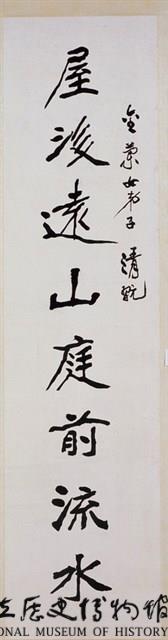 金蘭女弟子清玩
屋後遠山庭前流水
立歷史博物館
ONAL MUSEUM OF HISTORY